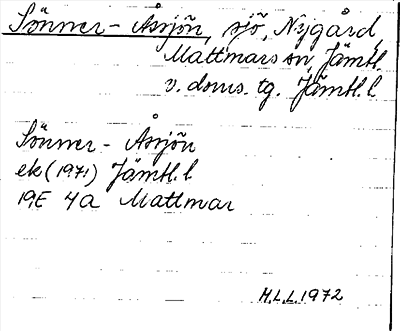 Sönner-Åssjön, sjö, Nygård,
Mattmars sn, Jämtl.
v. doms. tg. Jämtl. l
Sönner - Åssjön
ek (1971) Jämtl. l
19E 4a Mattmar
H.L.L. 1972